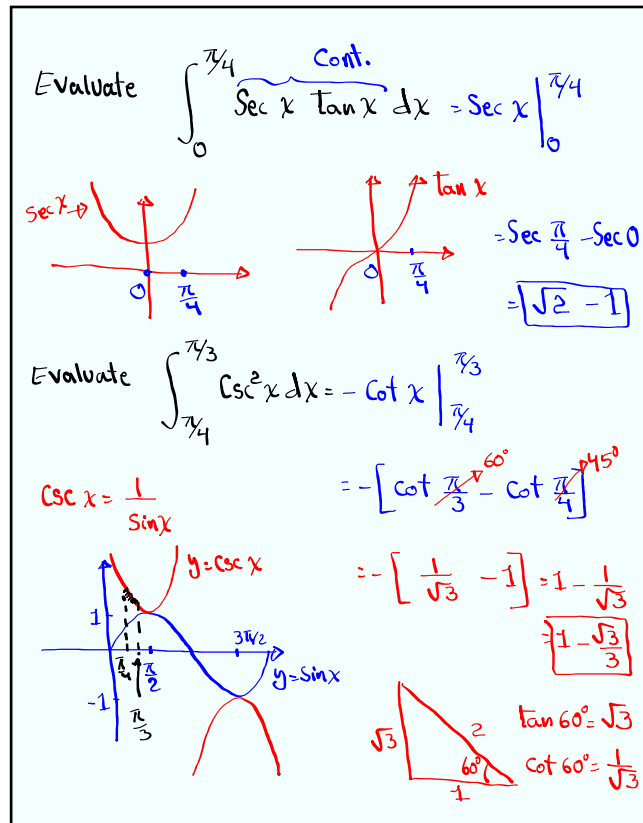 Cont.
Evaluate ∫₀^(π/4) Sec x tan x dx = Sec x |₀^(π/4)
sec x →
0 π/4
tan x
0 π/4
= Sec π/4 - Sec 0
= √2 - 1
Evaluate ∫_(π/4)^(π/3) Csc² x dx = - Cot x |_(π/4)^(π/3)
= - [ cot π/3 60° - cot π/4 45° ]
Csc x = 1/Sin x
= - [ 1/√3 - 1 ] = 1 - 1/√3
= 1 - √3/3
y = Csc x
1
π/4 π/3 π/2 3π/2
-1
y = Sin x
√3 2 60° 1
tan 60° = √3
Cot 60° = 1/√3